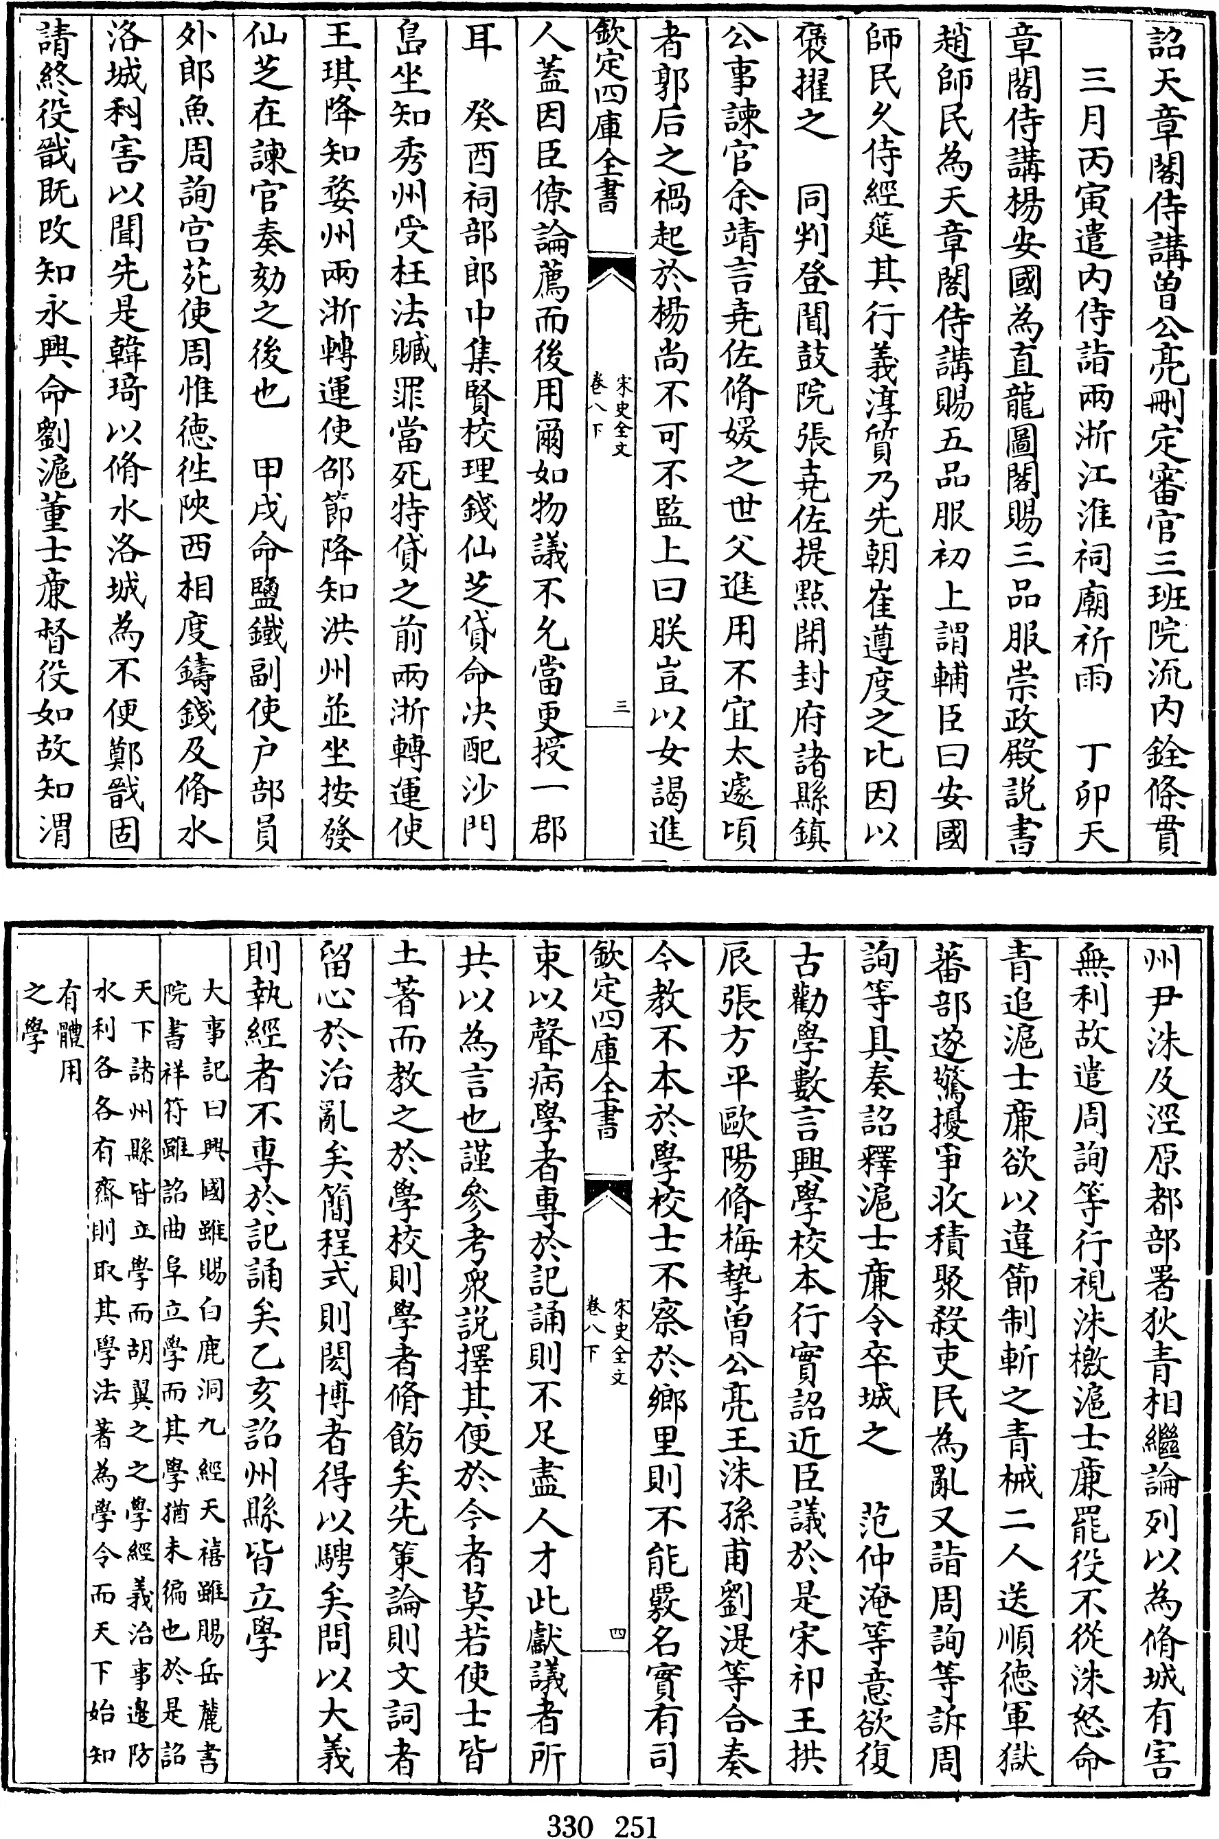 詔天章閣侍講曽公亮刪定審官三班院流内銓條貫
三月丙寅遣内侍詣兩浙江淮祠廟祈雨　丁卯天
章閣侍講楊安國為直龍圖閣賜三品服崇政殿説書
趙師民為天章閣侍講賜五品服初上謂輔臣曰安國
師民久侍經筵其行義淳質乃先朝崔遵度之比因以
褒擢之　同判登聞鼓院張堯佐提點開封府諸縣鎮
公事諫官余靖言堯佐脩媛之世父進用不宜太遽頃
者郭后之禍起於楊尚不可不監上曰朕豈以女謁進
欽定四庫全書
宋史全文
卷八下
三
人蓋因臣僚論薦而後用爾如物議不允當更授一郡
耳　癸酉祠部郎中集賢校理錢仙芝貸命決配沙門
島坐知秀州受枉法贓罪當死特貸之前兩浙轉運使
王琪降知婺州兩浙轉運使邵節降知洪州並坐按發
仙芝在諫官奏劾之後也　甲戌命鹽鐵副使户部員
外郎魚周詢宫苑使周惟徳徃陜西相度鑄錢及脩水
洛城利害以聞先是韓琦以脩水洛城為不便鄭戩固
請終役戩既改知永興命劉滬董士㢘督役如故知渭
州尹洙及涇原都部署狄青相繼論列以為脩城有害
無利故遣周詢等行視洙檄滬士㢘罷役不從洙怒命
青追滬士㢘欲以違節制斬之青械二人送順徳軍獄
蕃部遂驚擾爭收積聚殺吏民為亂又詣周詢等訴周
詢等具奏詔釋滬士㢘令卒城之　范仲淹等意欲復
古勸學數言興學校本行實詔近臣議於是宋祁王拱
辰張方平歐陽脩梅摯曽公亮王洙孫甫劉湜等合奏
今教不本於學校士不察於鄉里則不能覈名實有司
欽定四庫全書
宋史全文
卷八下
四
束以聲病學者專於記誦則不足盡人才此獻議者所
共以為言也謹參考衆説擇其便於今者莫若使士皆
土著而教之於學校則學者脩飭矣先策論則文詞者
留心於治亂矣簡程式則閎博者得以騁矣問以大義
則執經者不專於記誦矣乙亥詔州縣皆立學
大事記曰興國雖賜白鹿洞九經天禧雖賜岳麓書
院書祥符雖詔曲阜立學而其學猶未徧也於是詔
天下諸州縣皆立學而胡翼之之學經義治事邉防
水利各各有齋則取其學法著為學令而天下始知
有體用
之學
330 251